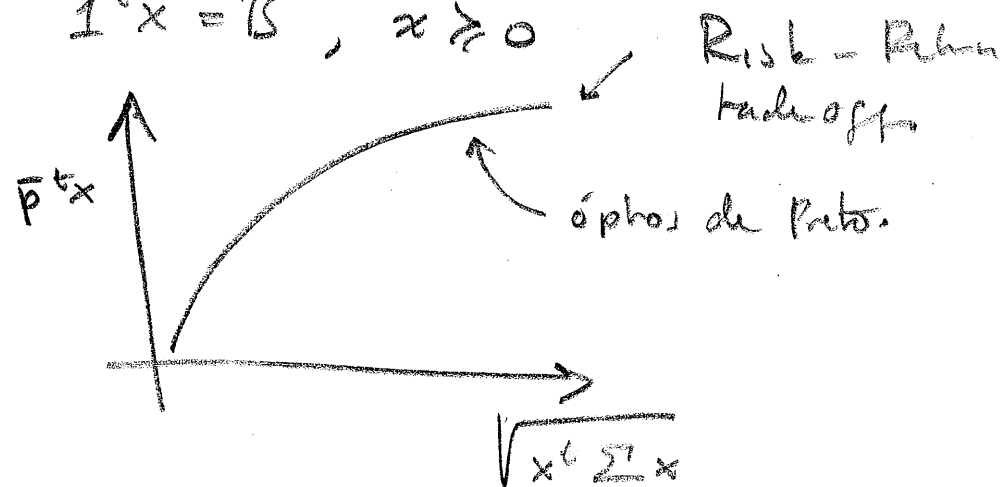 1ᵗx = B , x ≥ 0
Risk - Return
tradeoff
p̄ᵗx
óptos de Preto.
√(xᵗ Σ x)